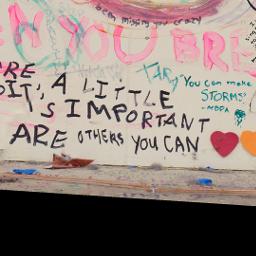 been missing you crazy
EN YOU BRE
ARE
DIT, A LITTLE
'S IMPORTANT
ARE OTHERS YOU CAN
You can make
STORMS